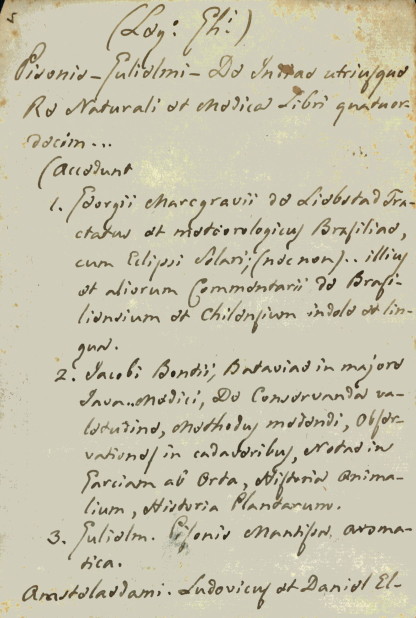 (Leg: Gh:)
Pisonis – Gulielmi – De Indiae utriusque
Re Naturali et Medica Libri quatuor-
decim...
(Accedunt
1. Georgii Marcgravii de Liebstad Tra-
ctatus et meteorologicus Brasiliae,
cum Eclipsi Solari; (nec non).. illius
et aliorum Commentarii de Brasi-
liensium et Chilensium indole et lin-
gua.
2. Jacobi Bontii, Bataviae in majore
Java.. Medici, De Conservanda va-
letudine, Methodus medendi, Obser-
vationes in cadaveribus, Notae in
Garciam ab Orta, Historia Anima-
lium, Historia Plantarum.
3. Gulielm. Pisonis Mantissa aroma-
tica.
Amstelaedami. Ludovicus et Daniel El-